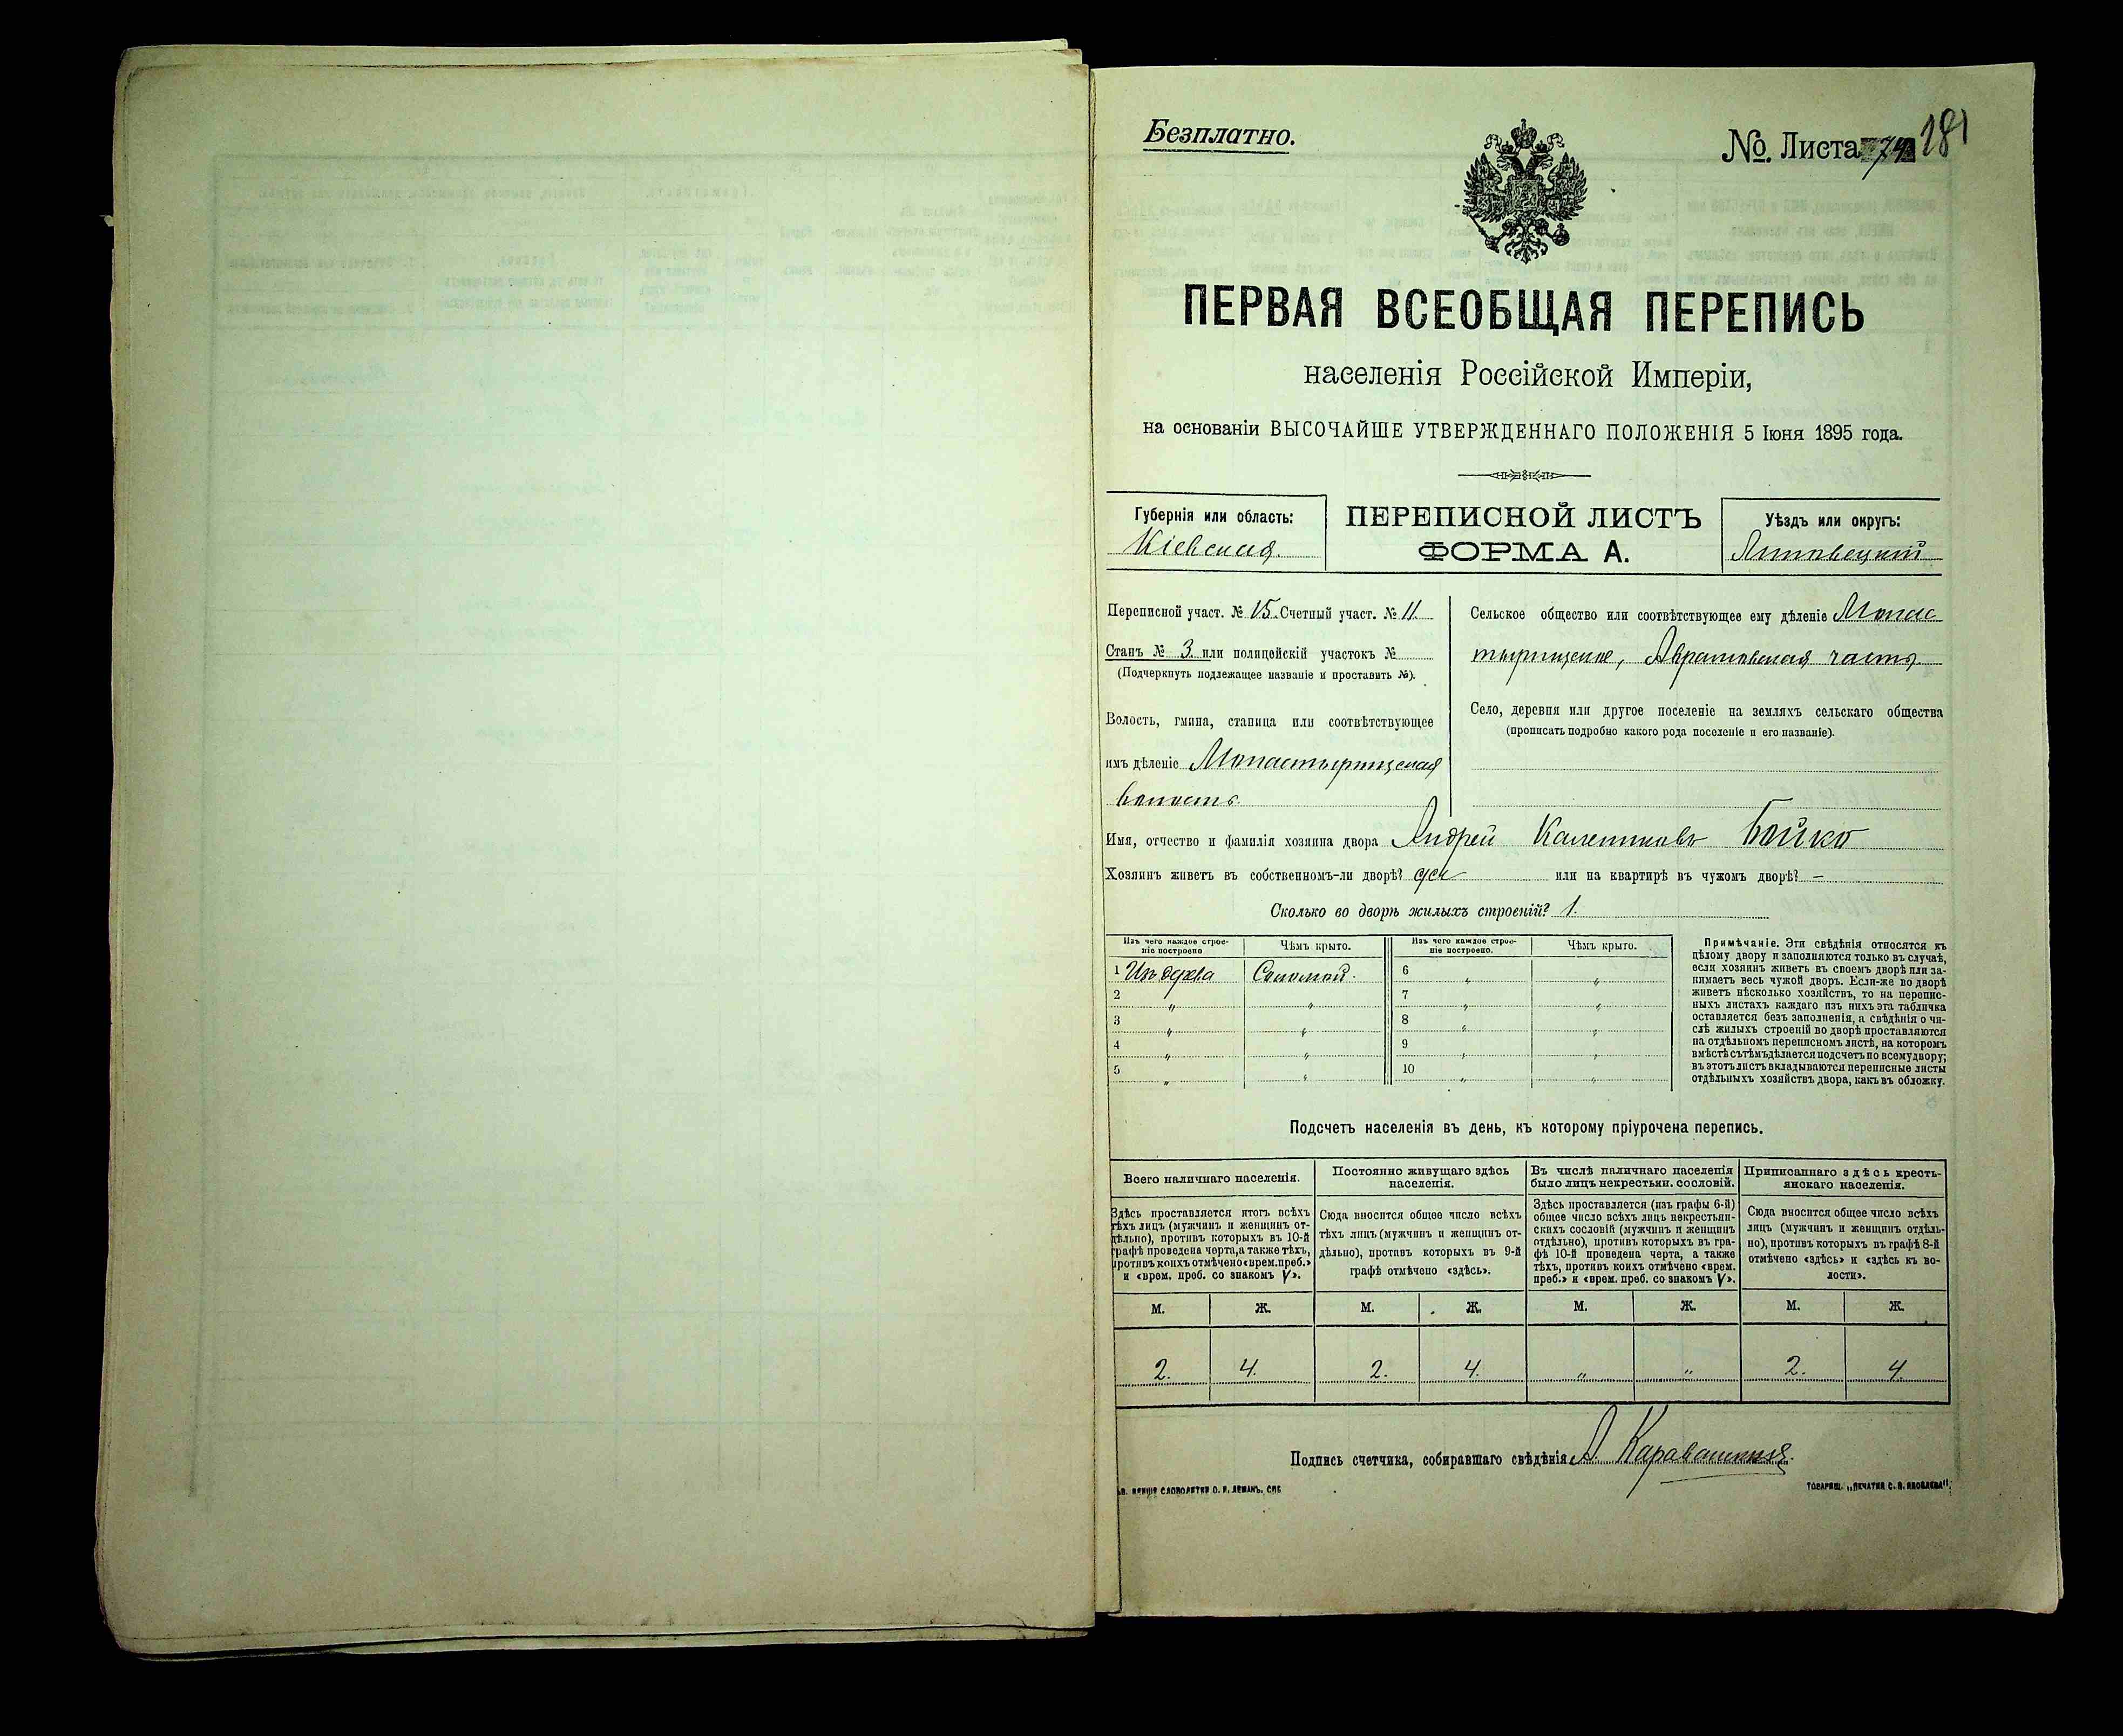 Безплатно.
№. Листа 74 181
ПЕРВАЯ ВСЕОБЩАЯ ПЕРЕПИСЬ
населенія Россійской Имперіи,
на основаніи ВЫСОЧАЙШЕ УТВЕРЖДЕННАГО ПОЛОЖЕНІЯ 5 Іюня 1895 года.
Губернія или область:
Кіевская
ПЕРЕПИСНОЙ ЛИСТЪ
ФОРМА А.
Уѣздъ или округъ:
Липовецкій
Переписной участ. № 15. Счетный участ. № 11.
Станъ № 3. или полицейскій участокъ №
(Подчеркнуть подлежащее названіе и проставить №).
Волость, гмина, станица или соотвѣтствующее
имъ дѣленіе Монастырищская
волость
Сельское общество или соотвѣтствующее ему дѣленіе Монас
тырищское, Аврамовская часть
Село, деревня или другое поселеніе на земляхъ сельскаго общества
(прописать подробно какого рода поселеніе и его названіе).
Имя, отчество и фамилія хозяина двора Андрей Калениковъ Бойко
Хозяинъ живетъ въ собственномъ-ли дворѣ? да или на квартирѣ въ чужомъ дворѣ? —
Сколько во дворѣ жилыхъ строеній? 1.
Изъ чего каждое строе-
ніе построено
Чѣмъ крыто.
Изъ чего каждое строе-
ніе построено.
Чѣмъ крыто.
1 Изъ дерева Соломой. 6 " "
2 " " 7 " "
3 " " 8 " "
4 " " 9 " "
5 " " 10 " "
Примѣчаніе. Эти свѣдѣнія относятся къ
цѣлому двору и заполняются только въ случаѣ,
если хозяинъ живетъ въ своемъ дворѣ или за-
нимаетъ весь чужой дворъ. Если-же во дворѣ
живетъ нѣсколько хозяйствъ, то на перепис-
ныхъ листахъ каждаго изъ нихъ эта табличка
оставляется безъ заполненія, а свѣдѣнія о чи-
слѣ жилыхъ строеній во дворѣ проставляются
на отдѣльномъ переписномъ листѣ, на которомъ
вмѣстѣ съ тѣмъ дѣлается подсчетъ по всему двору;
въ этотъ листъ вкладываются переписные листы
отдѣльныхъ хозяйствъ двора, какъ въ обложку.
Подсчетъ населенія въ день, къ которому пріурочена перепись.
Всего наличнаго населенія.
Здѣсь проставляется итогъ всѣхъ
тѣхъ лицъ (мужчинъ и женщинъ от-
дѣльно), противъ которыхъ въ 10-й
графѣ проведена черта, а также тѣхъ,
противъ коихъ отмѣчено «врем. преб.»
и «врем. преб. со знакомъ V».
Постоянно живущаго здѣсь
населенія.
Сюда вносится общее число всѣхъ
тѣхъ лицъ (мужчинъ и женщинъ от-
дѣльно), противъ которыхъ въ 9-й
графѣ отмѣчено «здѣсь».
Въ числѣ наличнаго населенія
было лицъ некрестьян. сословій.
Здѣсь проставляется (изъ графы 6-й)
общее число всѣхъ лицъ некрестьян-
скихъ сословій (мужчинъ и женщинъ
отдѣльно), противъ которыхъ въ гра-
фѣ 10-й проведена черта, а также
тѣхъ, противъ коихъ отмѣчено «врем.
преб.» и «врем. преб. со знакомъ V».
Приписаннаго здѣсь кресть-
янскаго населенія.
Сюда вносится общее число всѣхъ
лицъ (мужчинъ и женщинъ отдѣль-
но), противъ которыхъ въ графѣ 8-й
отмѣчено «здѣсь» и «здѣсь къ во-
лости».
М. Ж. М. Ж. М. Ж. М. Ж.
2. 4. 2. 4. " " 2. 4.
Подпись счетчика, собиравшаго свѣдѣнія А.
СЛОВОЛИТНИ О. И. ЛЕМАНЪ, СПБ
ТОВАРИЩ. „ПЕЧАТНЯ С. П. ЯКОВЛЕВА".